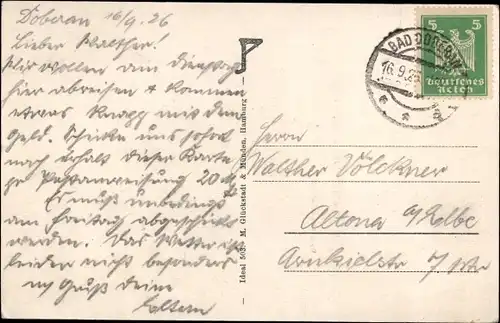 Doberan 16/9.26
Lieber Walther!
Wir wollen am Dienstag
hier abreisen + kommen
etwas knapp mit dem
Geld. Schicke uns sofort
nach erhalt dieser Karte
per Postanweisung 20 M
Es muß unbedingt
am Freitag abgeschickt
werden. Das Wetter ist
leider nicht besonders
Gruß deine
Eltern
Ideal 503 M. Glückstadt & Münden, Hamburg
BAD DOBERAN
16.9.26
5 5
Deutsches
Reich
Herrn
Walther Völckner
Altona a/Elbe